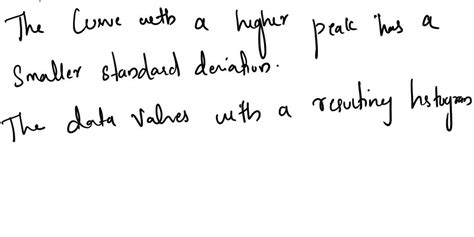 The Curve with a higher peak has a
Smaller standard deviation.
The data values with a resulting histogram